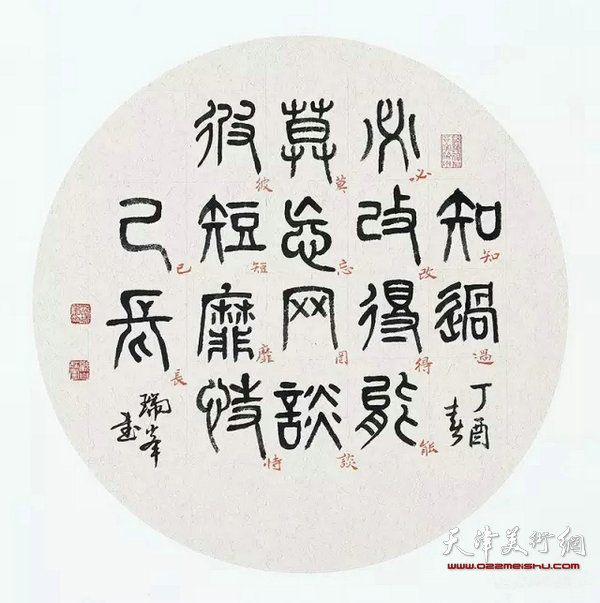 知過
丁酉
春
必改得能
莫忘网談
彼短靡恃
己長
瑞峯
书
知過
必改得能
莫忘罔談
彼短靡恃
已長
天津美術網
www.022meishu.com